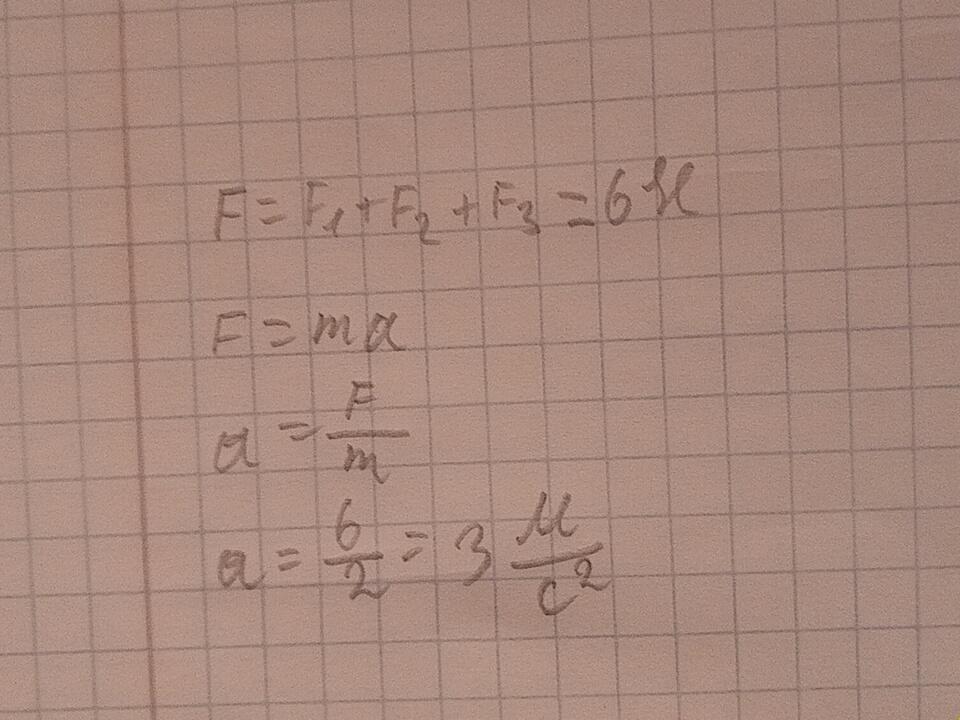 F = F₁ + F₂ + F₃ = 6 Н
F = ma
a = F/m
a = 6/2 = 3 м/с²